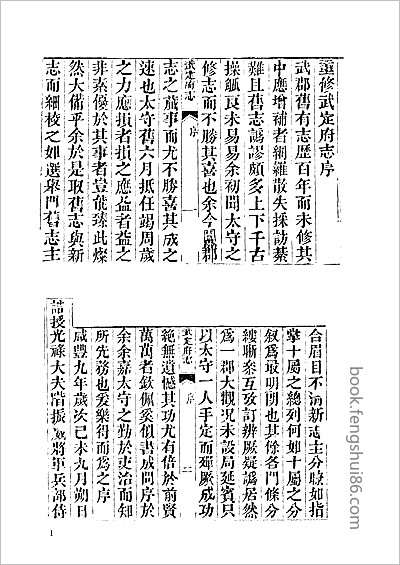 重修武定府志序
武郡舊有志歷百年而未修其
中應增補者網羅散失採訪綦
難且舊志譌謬頗多上下千古
操觚良未易易余初聞太守之
修志而不勝其喜也余今閱郡
武定府志
序
一
志之蕆事而尤不勝喜其成之
速也太守舊六月抵任竭周歲
之力應損者損之應益者益之
非素優於其事者豈能臻此燦
然大備乎余於是取舊志與新
志而細校之如選舉門舊志主
合眉目不淸新志主分瞭如指
掌十屬之總列何如十屬之分
叙爲最明閱也其餘各門條分
縷晰叅互攷訂辨厥疑譌居然
爲一郡大觀况未設局延賓只
以太守一人手定而殫厥成功
武定府志
序
二
絶無遺憾其功尤有倍於前賢
萬萬者欽佩奚似書成問序於
余余嘉太守之勤於吏治而知
所先務也爰樂得而爲之序
咸豐九年歲次己未九月朔日
誥授光祿大夫建振威將軍兵部侍
book.fengshui86.com
1